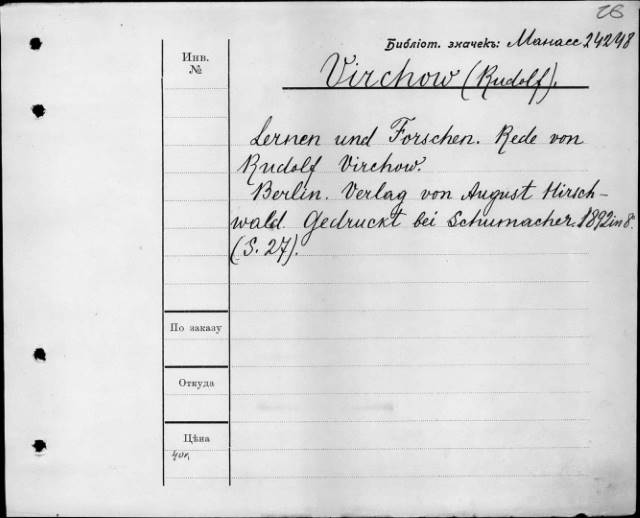 26
Библіот. значекъ: Манасс 24248
Инв.
№
Virchow (Rudolf).
Lernen und Forschen. Rede von
Rudolf Virchow.
Berlin. Verlag von August Hirsch-
wald. Gedruckt bei Schumacher. 1892 in 8.
(S. 27).
По заказу
Откуда
Цѣна